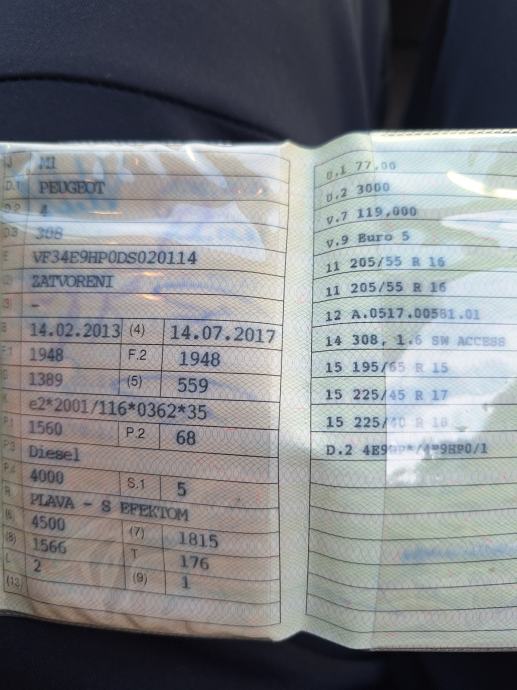 J M1
D.1 PEUGEOT
D.2 4
D.3 308
E VF34E9HP0DS020114
(2) ZATVORENI
(3) -
B 14.02.2013 (4) 14.07.2017
F.1 1948 F.2 1948
G 1389 (5) 559
K e2*2001/116*0362*35
P.1 1560 P.2 68
P.3 Diesel
P.4 4000 S.1 5
R PLAVA - S EFEKTOM
(6) 4500 (7) 1815
(8) 1566 T 176
L 2 (9) 1
(13)
U.1 77,00
U.2 3000
V.7 119,000
V.9 Euro 5
11 205/55 R 16
11 205/55 R 16
12 A.0517.00581.01
14 308, 1.6 SW ACCESS
15 195/65 R 15
15 225/45 R 17
15 225/40 R 18
D.2